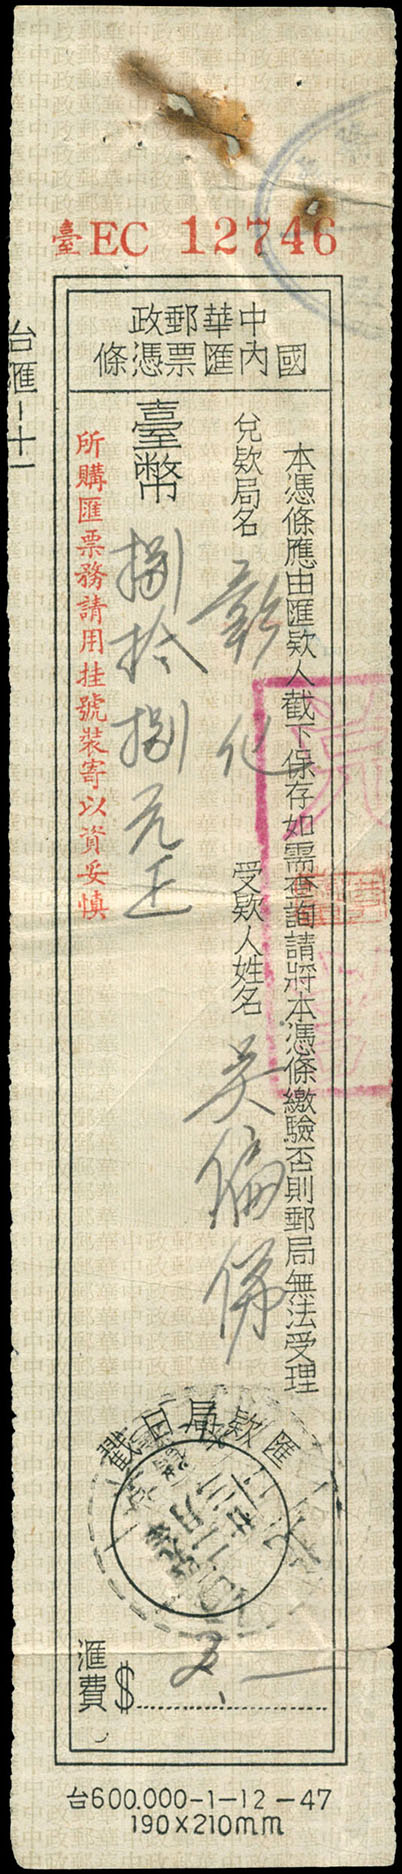 臺EC 12746
中華郵政
國內匯票憑條
本憑條應由匯欵人截下保存如需查詢請將本憑條繳驗否則郵局無法受理
兌欵局名 彰化 受欵人姓名 吳
臺幣 捌拾捌元正
所購匯票務請用挂號裝寄以資妥慎
台匯-十一
匯欵局日戳
匯費 $
台600.000-1-12-47
190×210mm